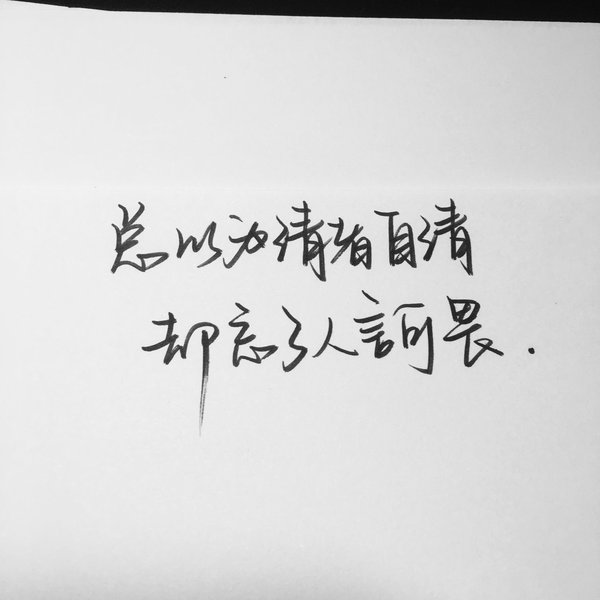 总以为清者自清
却忘了人言可畏.